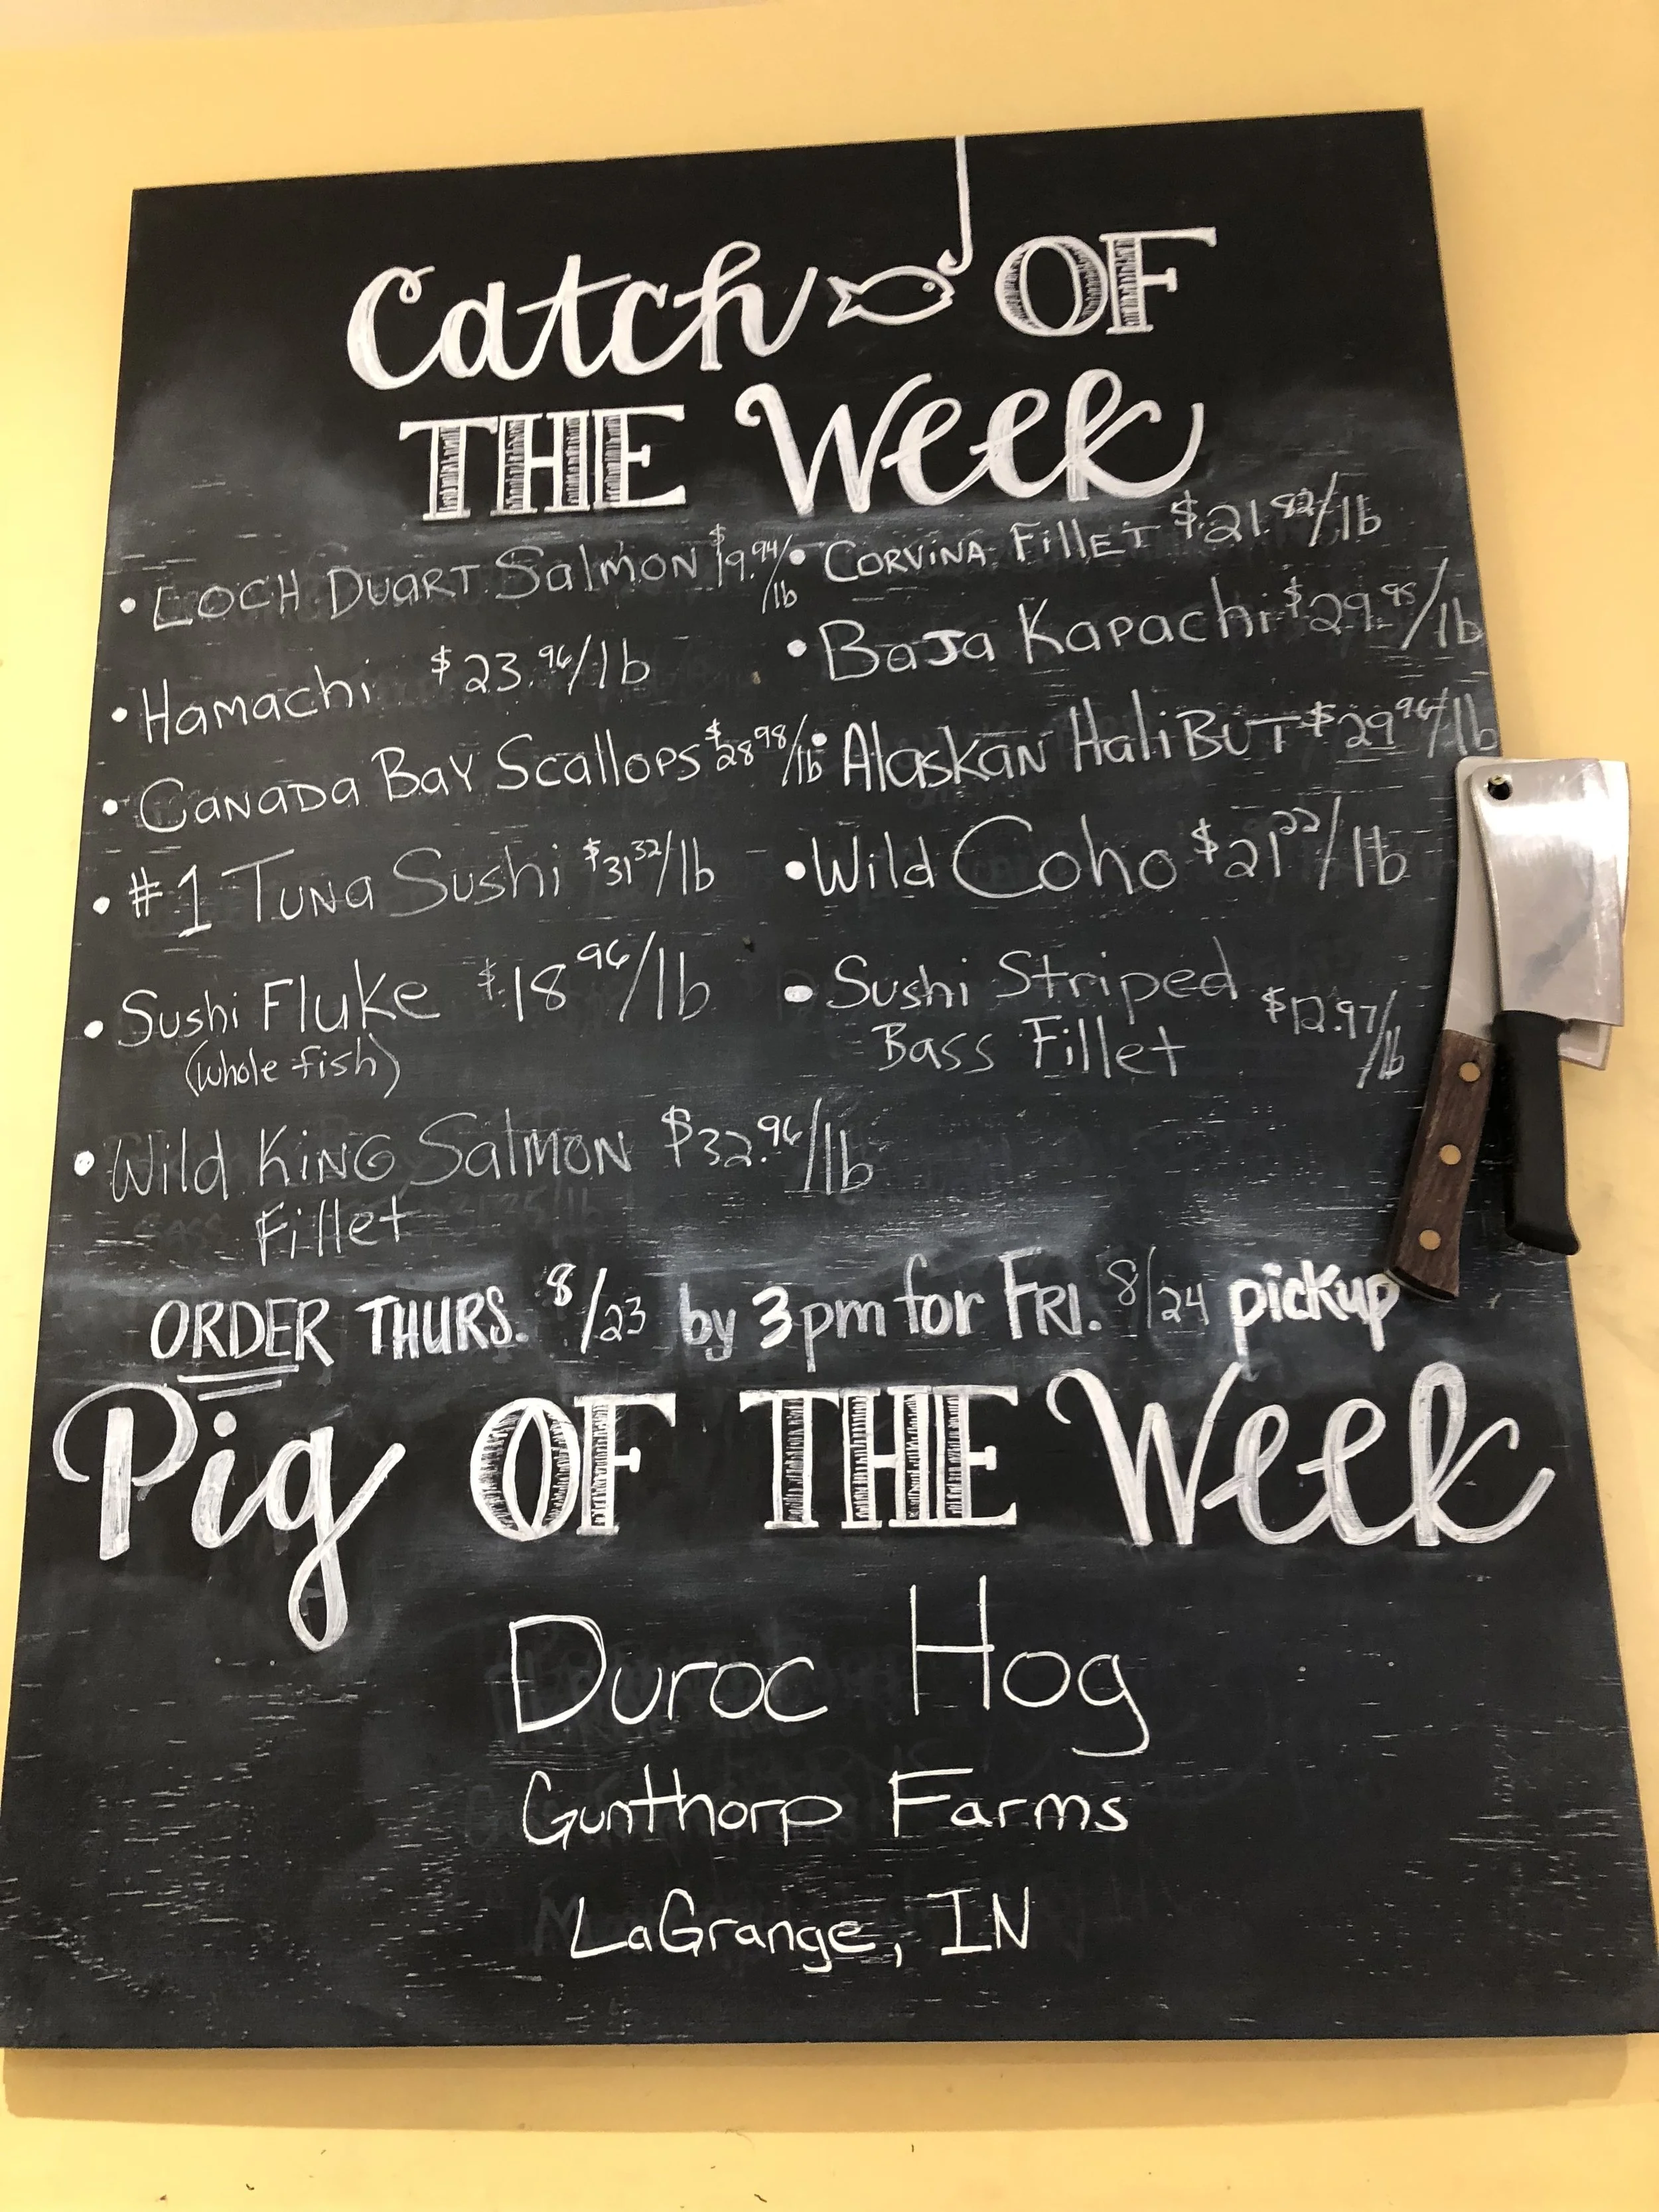 Catch OF
THE Week
• LOCH DUART Salmon $19.94/lb
• Hamachi $23.96/lb
• CANADA BAY Scallops $28.98/lb
• #1 TUNA Sushi $31.32/lb
• Sushi Fluke $18.96/lb
(whole fish)
• Wild KING Salmon $32.96/lb
Fillet
• CORVINA Fillet $21.82/lb
• BaJa Kapachi $29.98/lb
• Alaskan HaliBUT $29.96/lb
• Wild Coho $21.22/lb
• Sushi Striped
Bass Fillet $12.97/lb
ORDER THURS. 8/23 by 3pm for FRI. 8/24 pickup
Pig OF THE Week
Duroc Hog
Gunthorp Farms
LaGrange, IN